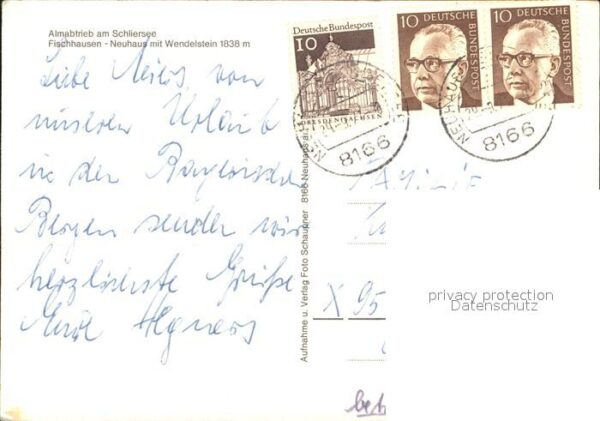 Almabtrieb am Schliersee
Fischhausen - Neuhaus mit Wendelstein 1838 m
Liebe von
unserem Urlaub
in den Bayerischen
Bergen senden wir
herzlichste Grüße
Eure
Deutsche Bundespost
10
DRESDEN/SACHSEN
10 DEUTSCHE
BUNDESPOST
10 DEUTSCHE
BUNDESPOST
8166
NEUHAUS
8166
Aufnahme u. Verlag Foto Schaupner 8166 Neuhaus
Familie
X 95
privacy protection
Datenschutz